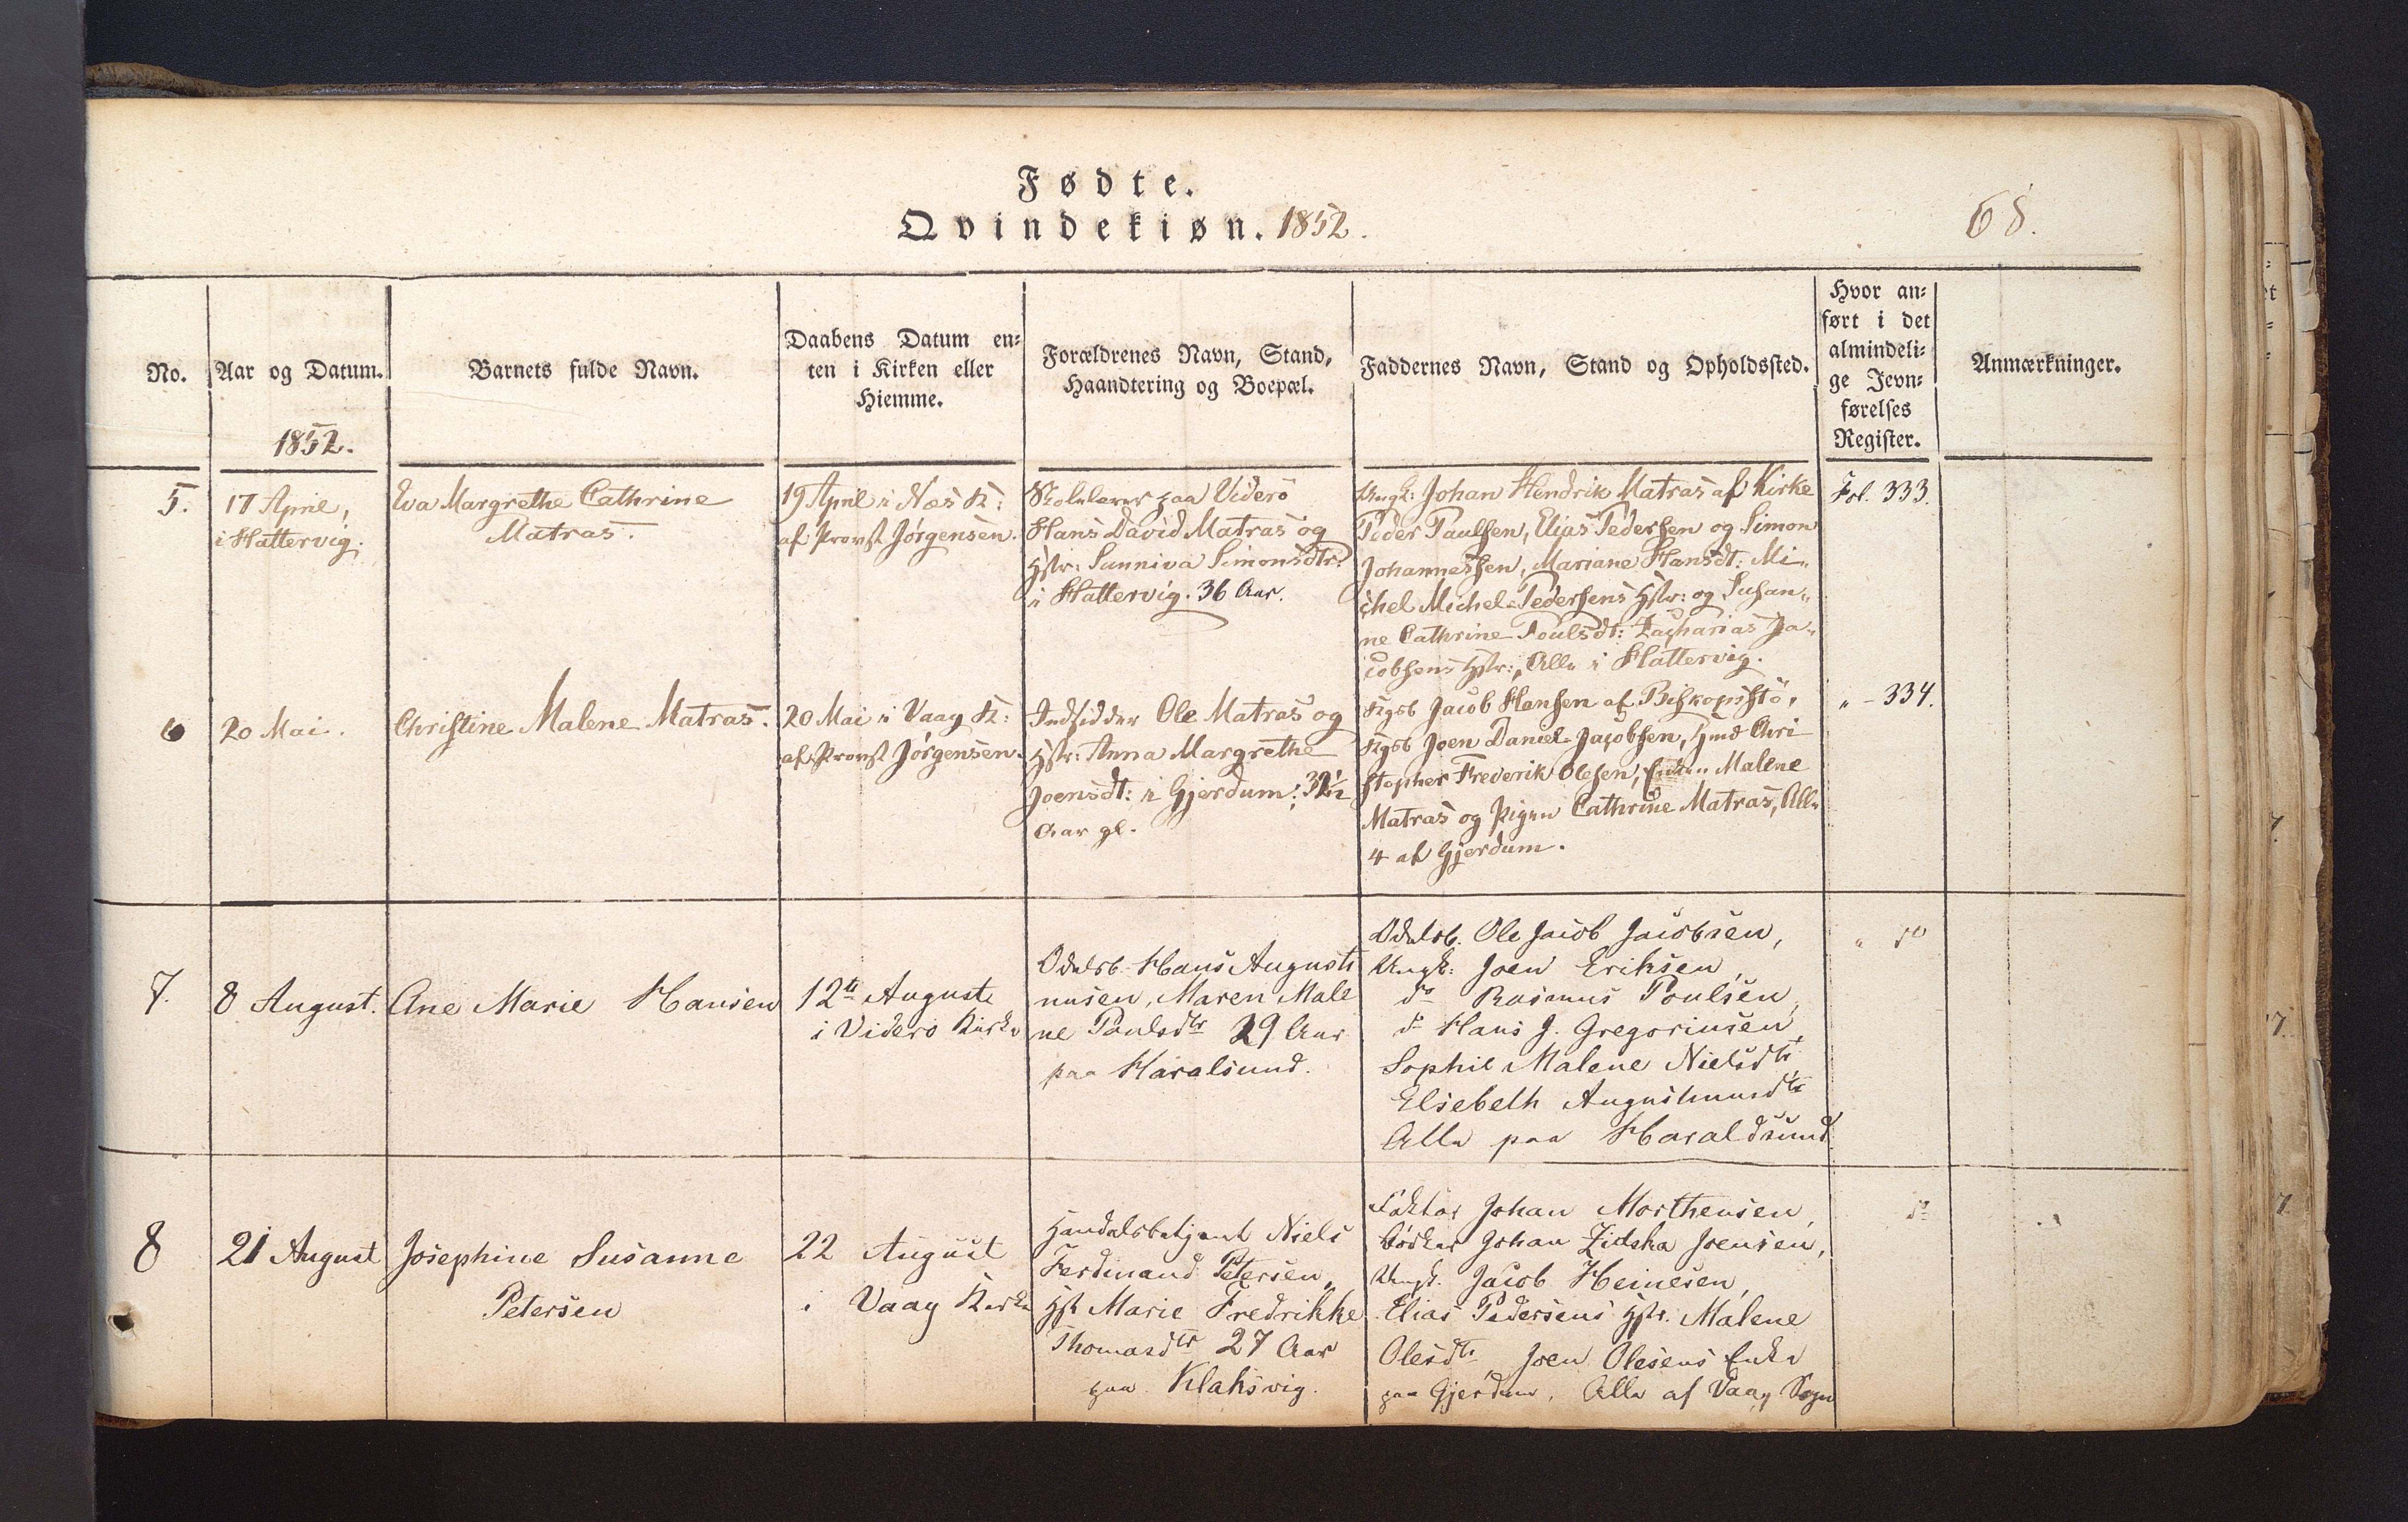 Fødte.
Qvindekiøn. 1852.
68.
No.
Aar og Datum.
1852.
Barnets fulde Navn.
Daabens Datum en-
ten i Kirken eller
Hiemme.
Forældrenes Navn, Stand,
Haandtering og Boepæl.
Faddernes Navn, Stand og Opholdssted.
Hvor an-
ført i det
almindeli-
ge Jevn-
førelses
Register.
Anmærkninger.
5.
17 April,
i Hattervig.
Eva Margrethe Cathrine
Matras.
19 April i Næs K:
af Provst Jørgensen.
Skolelærer paa Viderø
Hans David Matras og
Hstr: Sunniva Simonsdtr:
i Hattervig. 36 Aar.
Ungk: Johan Hendrik Matras af Kirke
Peder Paulsen, Elias Pedersen og Simon
Johannessen, Mariane Hansdt: Mi-
chel Michel Pedersens Hstr: og Susan-
ne Cathrine Poulsdt: Zacharias Ja-
cobsens Hstr:, Alle i Hattervig.
Fol. 333.
6
20 Mai.
Christine Malene Matras.
20 Mai i Vaag K:
af Provst Jørgensen.
Indsidder Ole Matras og
Hstr: Anna Margrethe
Joensdt: i Gjerdum;
Aar gl.
Jacob Hansen af Biskopsstø,
Joen Daniel Jacobsen, Chri
stopher Frederik Olesen, Enken Malene
Matras og Pigen Cathrine Matras, Alle
4 af Gjerdum.
" - 334.
7.
8 August.
Ane Marie Hansen
12te August
i Viderø Kirke
Odelsb. Hans Augusti
nusen, Maren Male
ne Poulsdtr 29 Aar
paa Haralsund.
Odelsb. Ole Jacob Jacobsen,
Ungk: Joen Eriksen,
do Rasmus Poulsen,
do Hans J. Gregoriusen,
Sophie Malene Nielsdtr
Elsebeth Augustinusdtr
Alle paa Haraldsund
" do
8
21 August
Josephine Susanne
Petersen
22 August
i Vaag Kirke
Handelsbetjent Niels
Ferdinand Petersen,
Hst Marie Fredrikke
Thomasdtr 27 Aar
paa Klaksvig.
Faktor Johan Morthensen,
Bødker Johan Zidska Joensen,
Ungk. Jacob Heinesen,
Elias Pedersens Hstr. Malene
Olesdtr Joen Olesens Enke
paa Gjerdum. Alle af Vaag Sogn
do